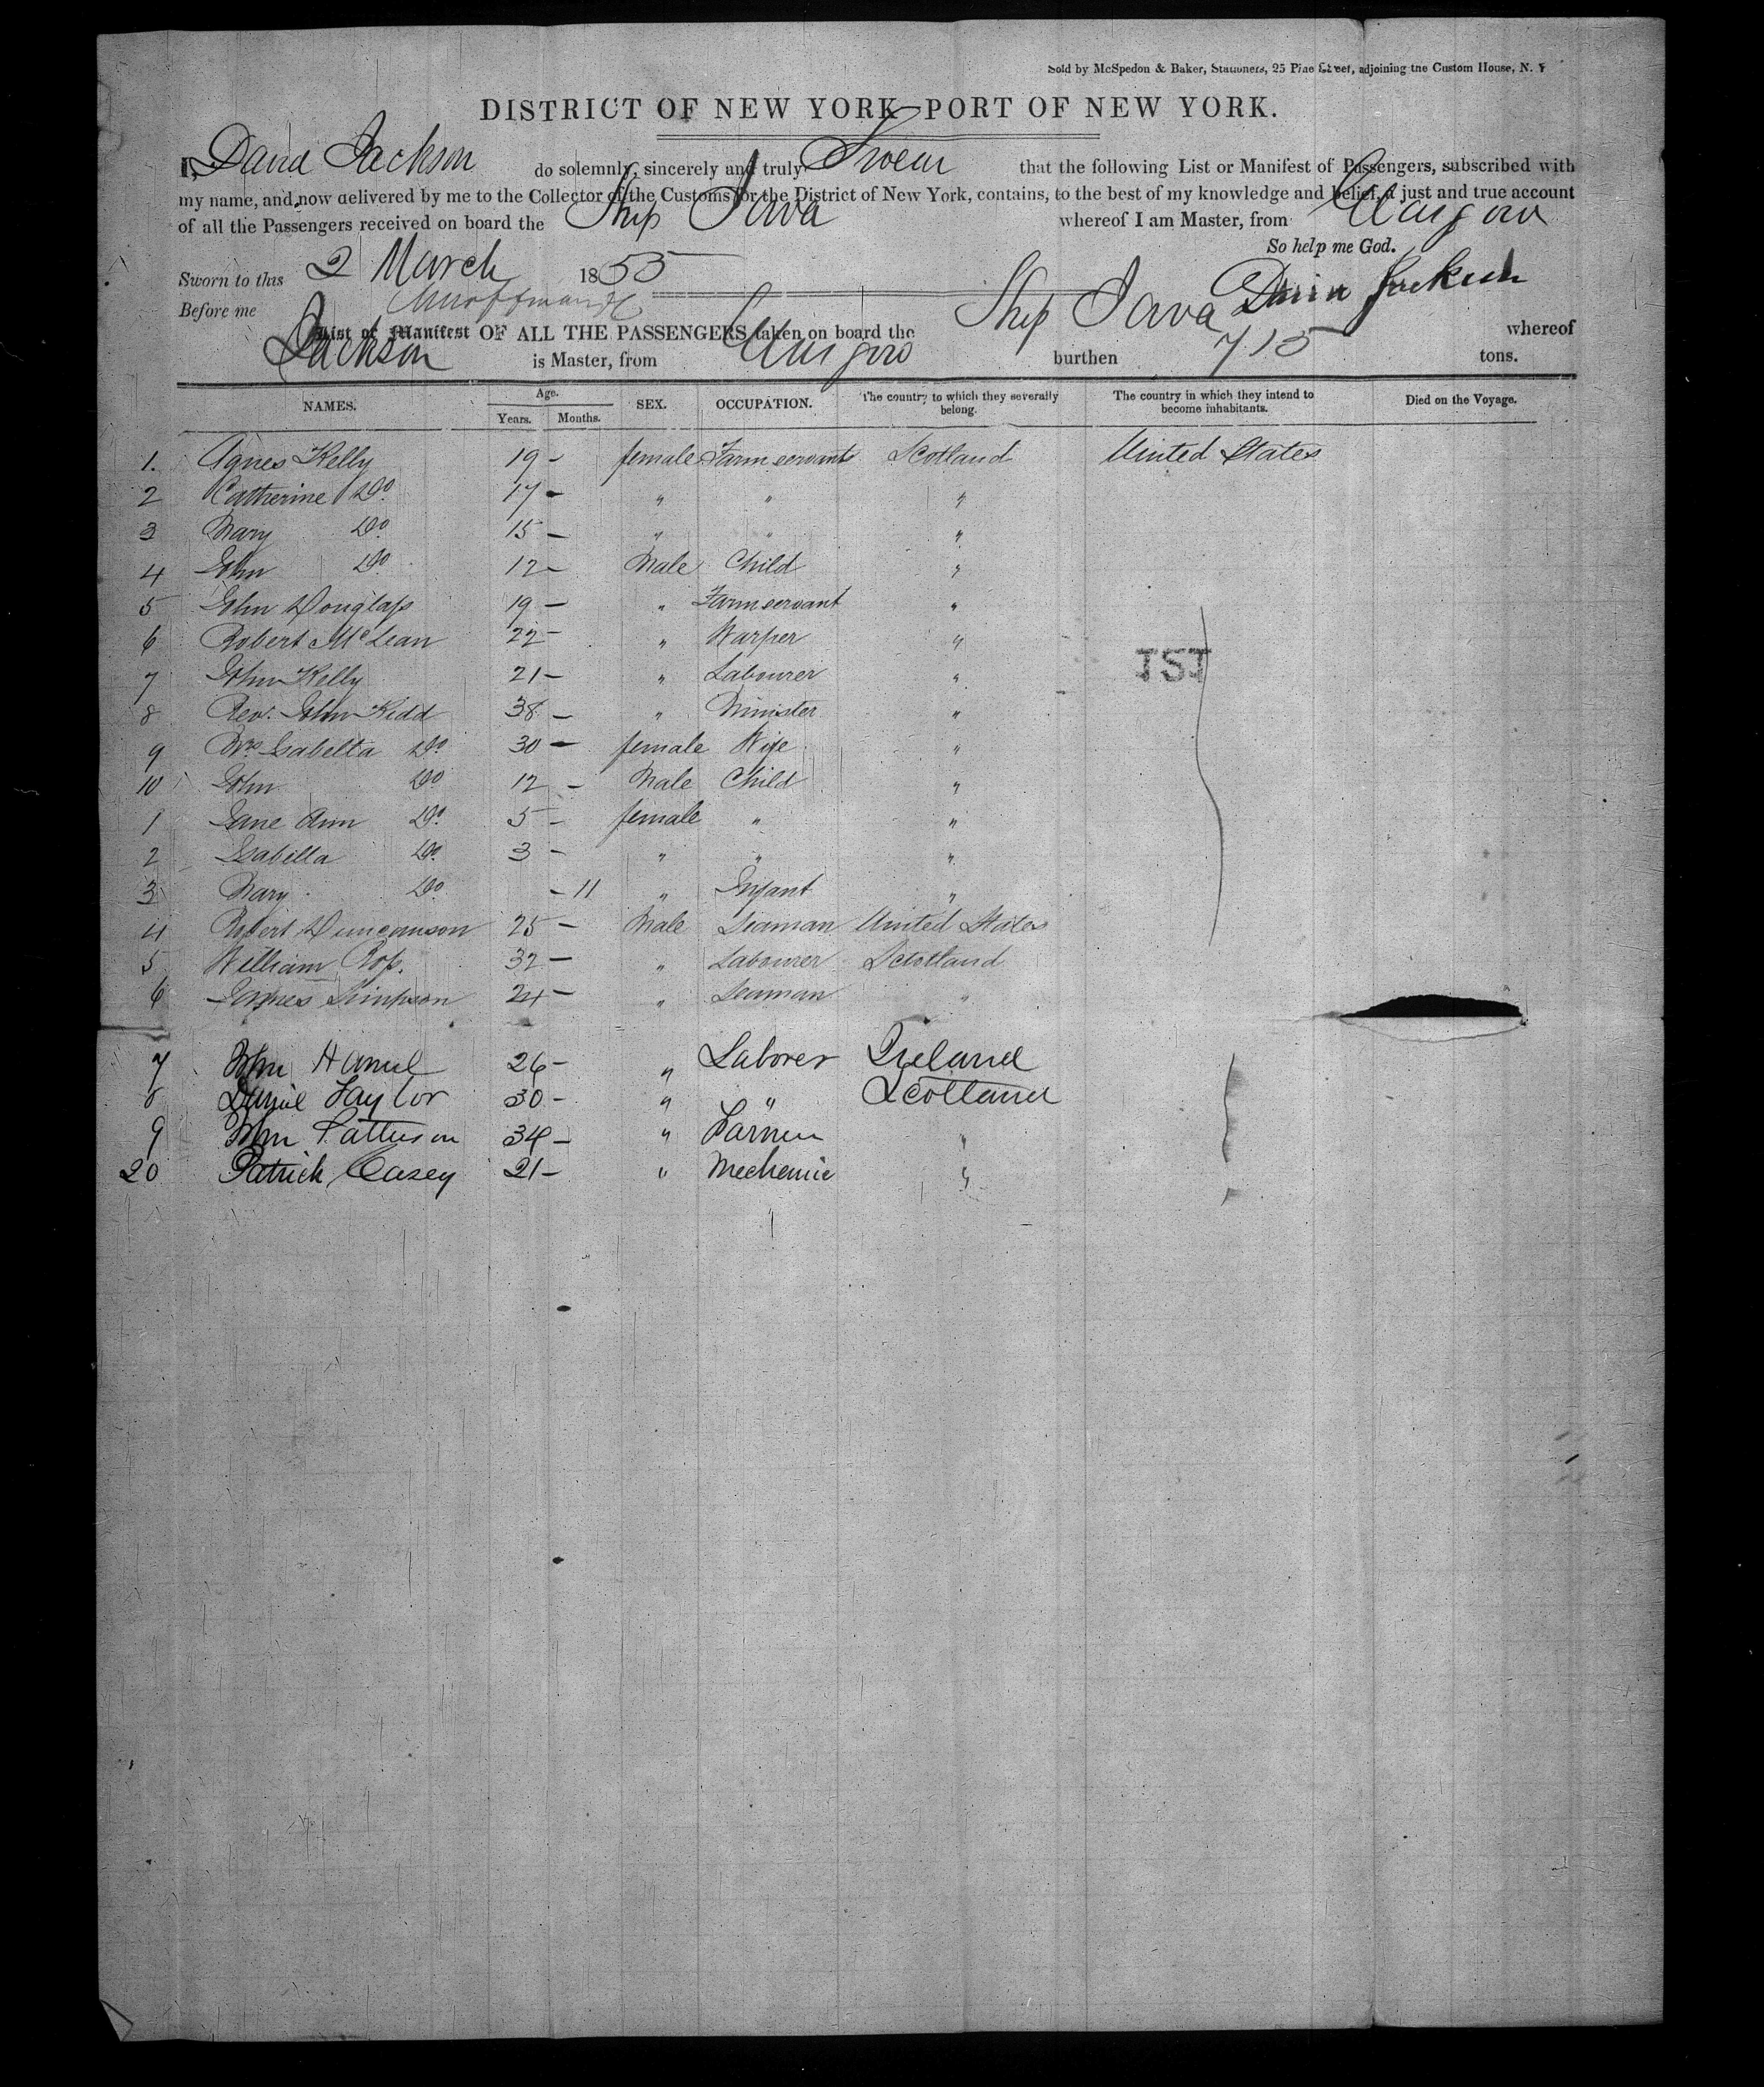 Sold by McSpedon & Baker, Stationers, 25 Pine Street, adjoining the Custom House, N. Y
DISTRICT OF NEW YORK—PORT OF NEW YORK.
I, David Jackson do solemnly, sincerely and truly Swear that the following List or Manifest of Passengers, subscribed with
my name, and now delivered by me to the Collector of the Customs for the District of New York, contains, to the best of my knowledge and belief, a just and true account
of all the Passengers received on board the Ship Java whereof I am Master, from Glasgow
So help me God.
Sworn to this 2 March 1855
David Jackson
Before me
List or Manifest OF ALL THE PASSENGERS taken on board the Ship Java whereof
Jackson is Master, from Glasgow burthen 715 tons.
NAMES. Age. Years. Months. SEX. OCCUPATION. The country to which they severally belong. The country in which they intend to become inhabitants. Died on the Voyage.
1. Agnes Kelly 19 – female Farm servant Scotland United States
2 Catherine Do. 17 – " " "
3 Mary Do. 15 – " " "
4 John Do. 12 – Male Child "
5 John Douglass 19 – " Farm servant "
6 Robert McLean 22 – " Warper "
7 John Kelly 21 – " Labourer "
TST
8 Rev. John Kidd 38 – " Minister "
9 Mrs Isabella Do. 30 – female Wife "
10 John Do. 12 – Male Child "
1 Jane Ann Do. 5 – female " "
2 Isabella Do. 3 – " " "
3 Mary Do. – 11 " Infant "
4 Robert Duncanson 25 – Male Seaman United States
5 William Ross. 32 – " Labourer Scotland
6 James Simpson 24 – " Seaman "
7 26 – " Laborer Ireland
8 Daniel Taylor 30 – " " Scotland
9 Wm Patterson 34 – " Farmer "
20 Patrick Casey 21 – " Mechanic "